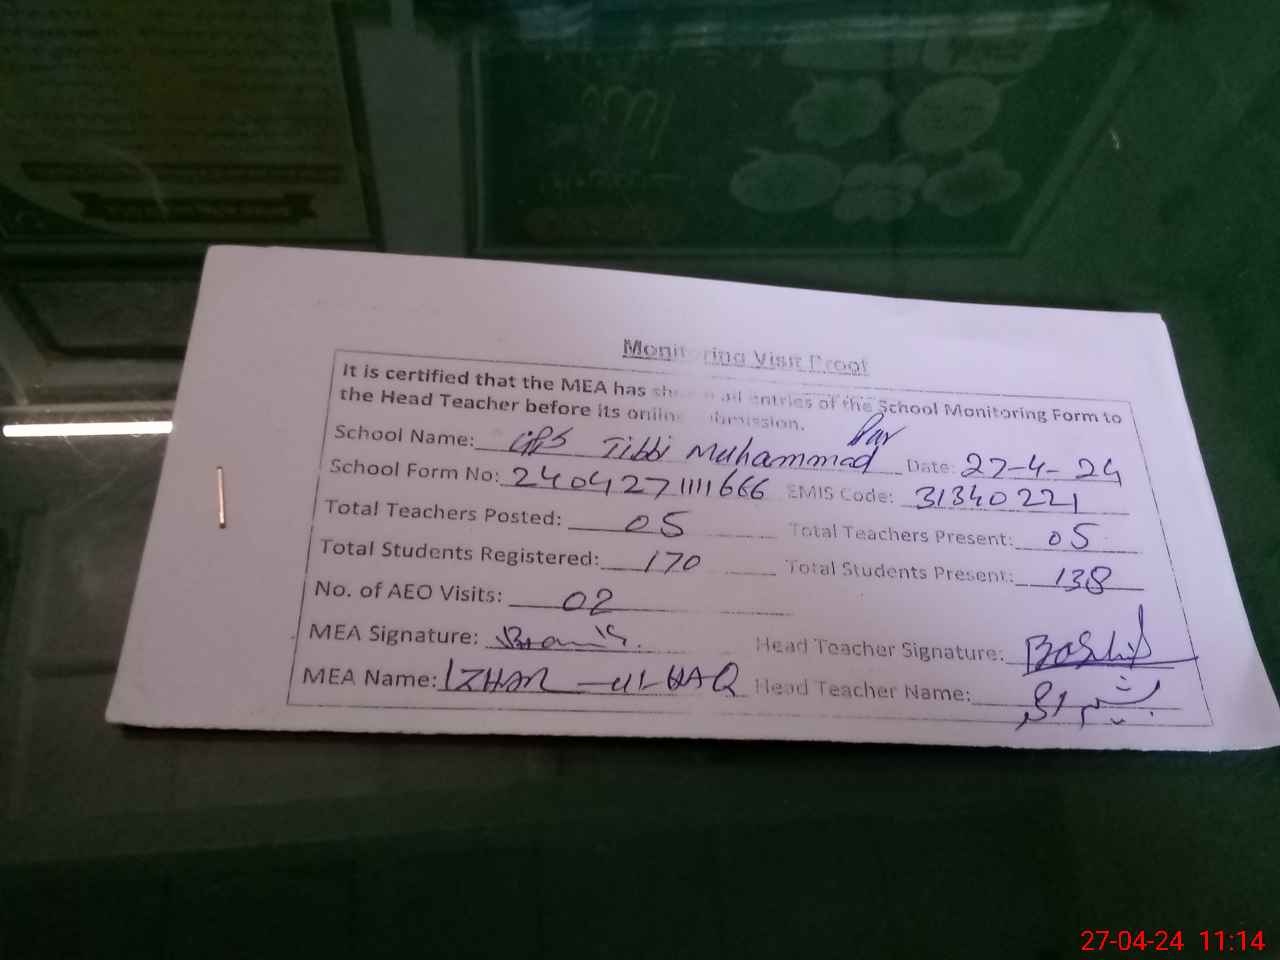 Monitoring Visit Proof
It is certified that the MEA has shared entries of the School Monitoring Form to
the Head Teacher before its online submission.
School Name: GPS Tibbi Muhammad Pur Date: 27-4-24
School Form No: 2404271111666 EMIS Code: 31340221
Total Teachers Posted: 05 Total Teachers Present: 05
Total Students Registered: 170 Total Students Present: 138
No. of AEO Visits: 02
MEA Signature: Head Teacher Signature: Bashir
MEA Name: IZHAR-UL-HAQ Head Teacher Name:
27-04-24 11:14